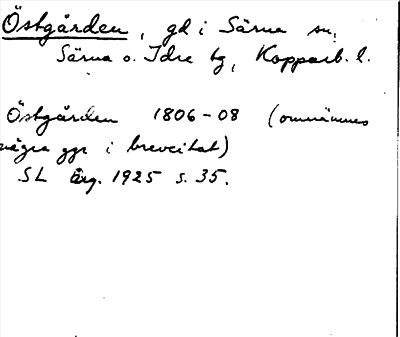 Östgården, gd i Särna sn,
Särna o. Idre tg, Kopparb. l.
Östgården 1806-08 (omnämnes
några ggr i brevcitat)
SL årg. 1925 s. 35.